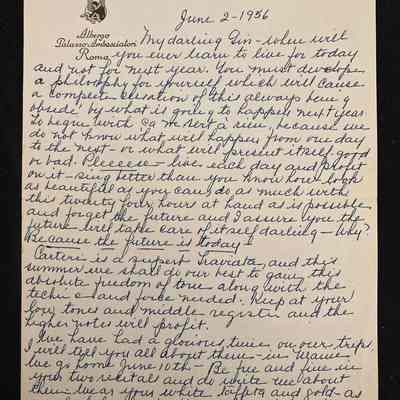 June 2 - 1956
Albergo
Palazzo Ambasciatori
Roma
My darling Gin - when will
you ever learn to live for today
and not for next year. You must develope
a philosophy for yourself which will cause
a complete cessation of this always being
obsédé by what is going to happen next year.
To begin with ça ne sert a rien, because we
do not know what will happen from one day
to the next - or what will present itself, good
or bad. Pleeeese - live each day and
on it - sing better than you know how, look
as beautiful as you can, do as much with
this twenty four hours at hand as is possible
and forget the future and I assure you the
future will take care of itself darling - Why?
Because the future is today -
Carteri is a superb Traviata, and this
summer we shall do our best to gain this
absolute freedom of tone along with the
technic and force needed. Keep at your
low tones and middle register and the
higher notes will profit.
We have had a glorious time on our trips.
I will tell you all about them - in Maine
We go home June 10th - Be fine and fine in
your two recitals and do write me about
them - Wear your white taffeta and gold - as